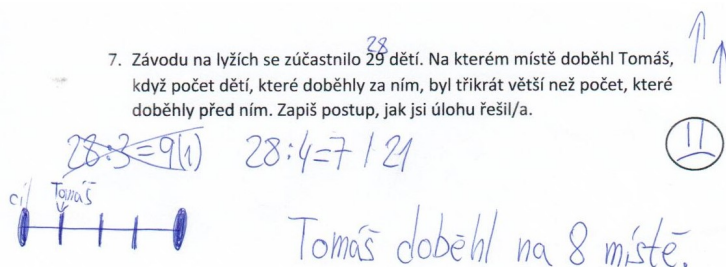 28
7. Závodu na lyžích se zúčastnilo 29 dětí. Na kterém místě doběhl Tomáš,
když počet dětí, které doběhly za ním, byl třikrát větší než počet, které
doběhly před ním. Zapiš postup, jak jsi úlohu řešil/a.
28:3=9(1) 28:4=7 / 21
cíl Tomáš
Tomáš doběhl na 8 místě.